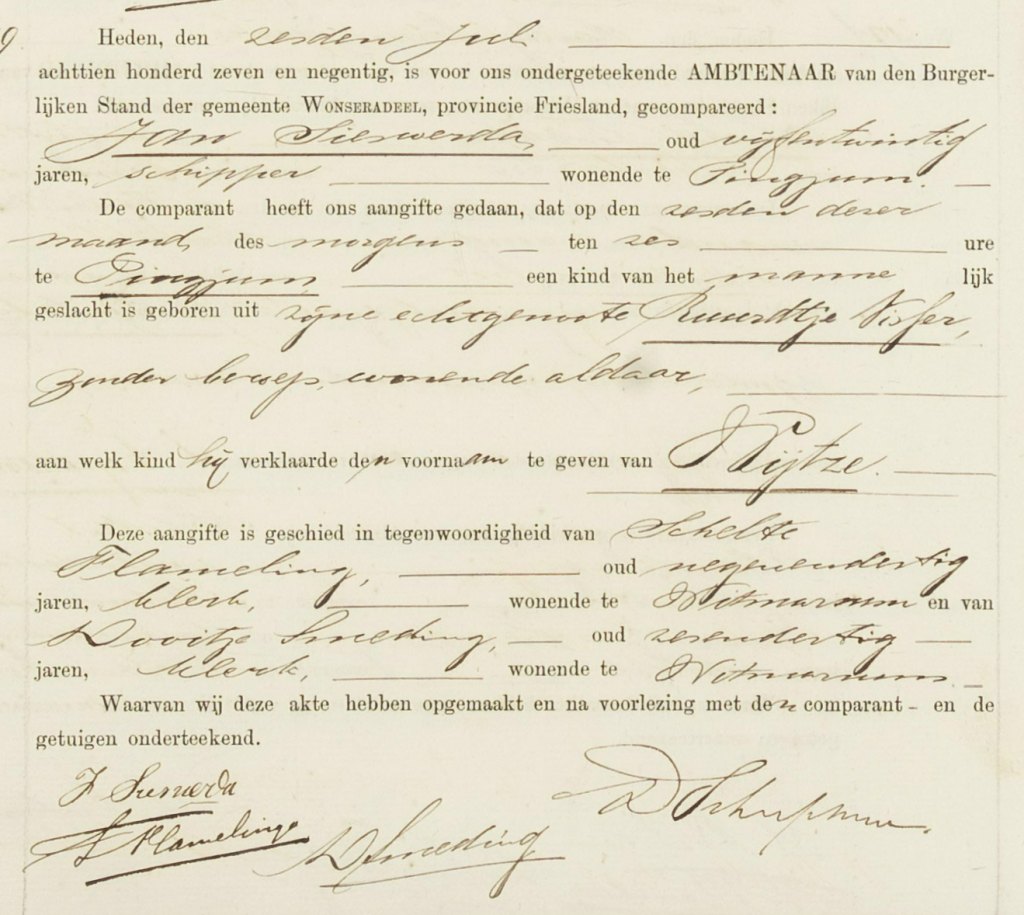 9
Heden, den zesden Juli
achttien honderd zeven en negentig, is voor ons ondergeteekende AMBTENAAR van den Burger-
lijken Stand der gemeente WONSERADEEL, provincie Friesland, gecompareerd:
Jan Sierverda, oud vijfentwintig
jaren, schipper wonende te Pingjum.
De comparant heeft ons aangifte gedaan, dat op den zesden dezer
maand, des morgens ten zes ure
te Pingjum een kind van het manne lijk
geslacht is geboren uit zijne echtgenoote Ruurdtje Visser,
zonder beroep, wonende aldaar,
aan welk kind hij verklaarde den voornaam te geven van Wijtze.
Deze aangifte is geschied in tegenwoordigheid van Schelte
Flameling, oud negenendertig
jaren, klerk, wonende te Witmarsum en van
Dooitze Smeding, oud zesendertig
jaren, klerk, wonende te Witmarsum
Waarvan wij deze akte hebben opgemaakt en na voorlezing met den comparant - en de
getuigen onderteekend.
J
S Flameling
D Smeding